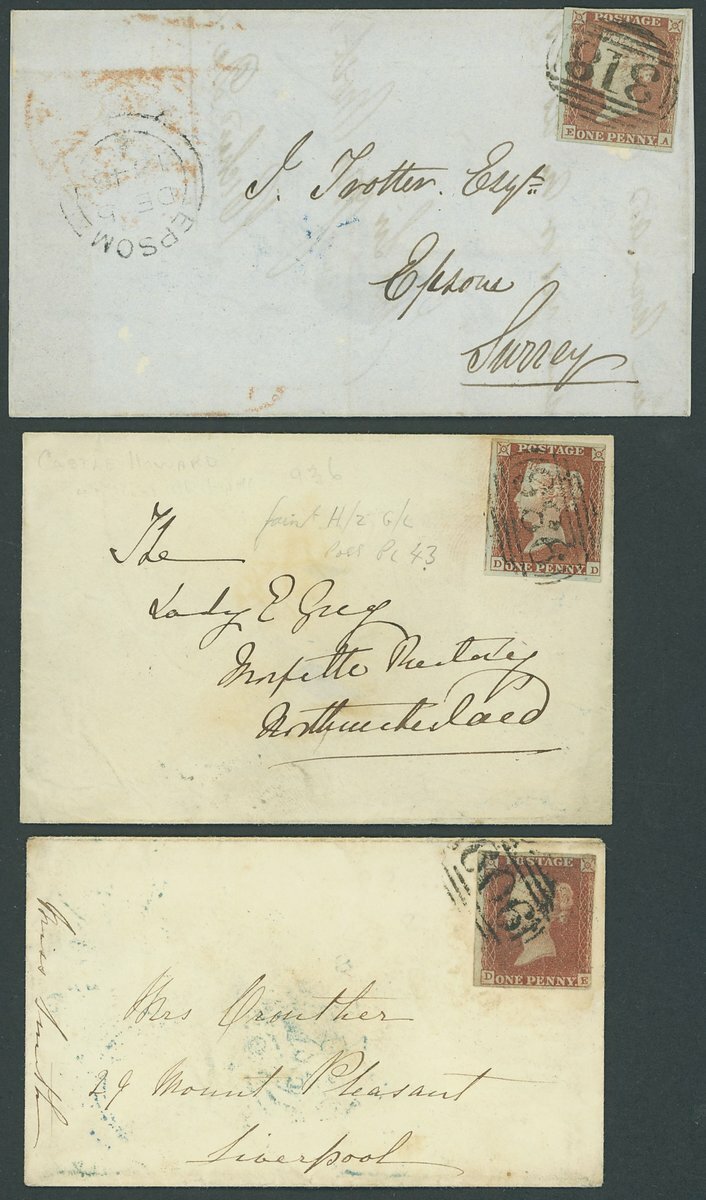 POSTAGE
318
E ONE PENNY A
J. Trotter Esqre
Epsom
Surrey
EPSOM
DE 5
CASTLE HOWARD
926
faint H/Z G/C
43
POSTAGE
D ONE PENNY D
The
Lady E Grey
Morpeth Rectory
Northumberland
POSTAGE
906
D ONE PENNY E
Miss Smith
Mrs Crowther
29 Mount Pleasant
Liverpool